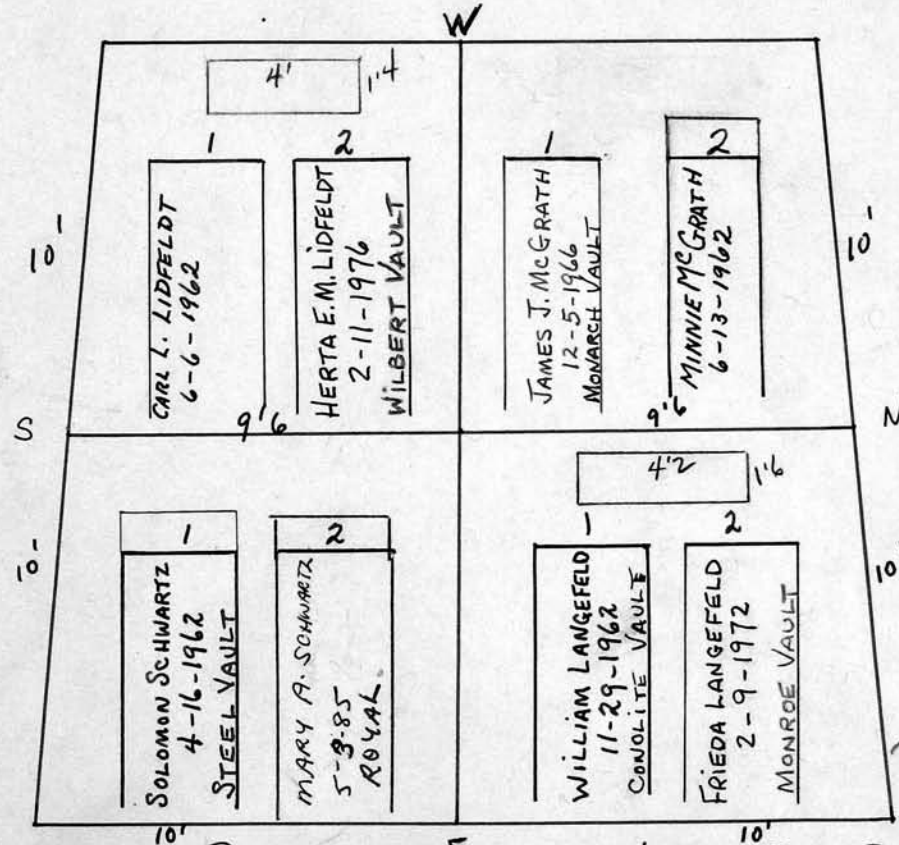 W
4'
1'4
1
2
1
2
10-
CARL L. LIDFELDT
6-6-1962
HERTA E.M. LIDFELDT
2-11-1976
WILBERT VAULT
JAMES J. MCGRATH
12-5-1966
MONARCH VAULT
MINNIE MCGRATH
6-13-1962
10-
S
9'6
9'6
N
4'2
1'6
1
2
1
2
10-
SOLOMON SCHWARTZ
4-16-1962
STEEL VAULT
MARY A. SCHWARTZ
5-3-85
ROYAL
WILLIAM LANGEFELD
11-29-1962
CONOLITE VAULT
FRIEDA LANGEFELD
2-9-1972
MONROE VAULT
10
10'
10'